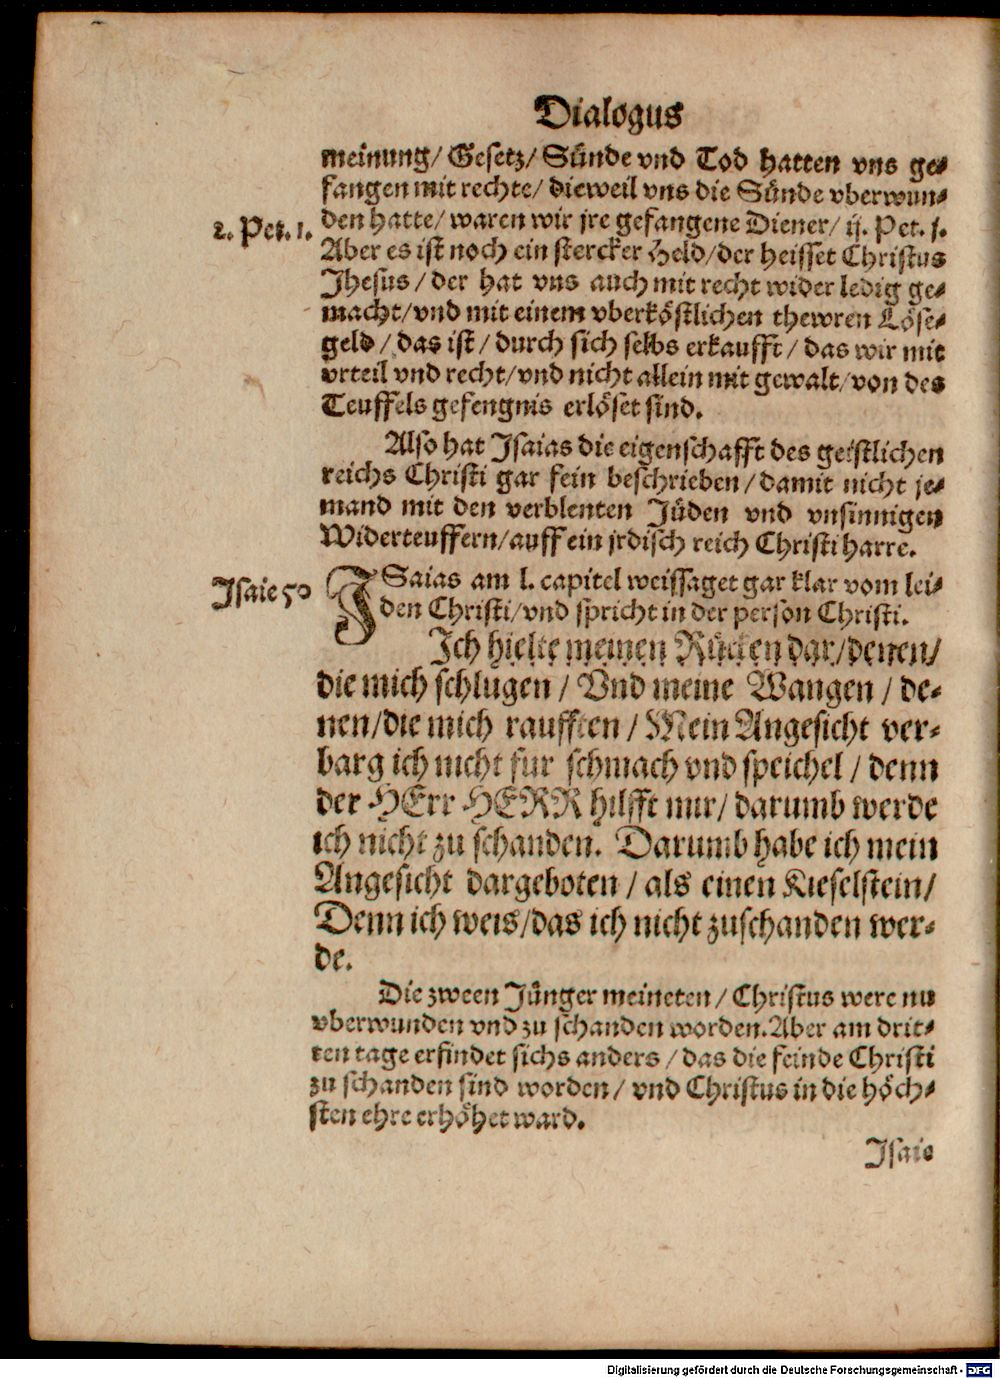 Dialogus
meinung/ Gesetz/ Sünde vnd Tod hatten vns ge-
fangen mit rechte/ dieweil vns die Sünde vberwun-
2. Pet. 1.
den hatte/ waren wir jre gefangene Diener/ ij. Pet. j.
Aber es ist noch ein stercker Held/ der heisset Christus
Jhesus/ der hat vns auch mit recht wider ledig ge-
macht/ vnd mit einem vberköstlichen thewren Löse-
geld/ das ist/ durch sich selbs erkaufft/ das wir mit
vrteil vnd recht/ vnd nicht allein mit gewalt/ von des
Teuffels gefengnis erlöset sind.
Also hat Jsaias die eigenschafft des geistlichen
reichs Christi gar fein beschrieben/ damit nicht je-
mand mit den verblenten Jüden vnd vnsinnigen
Widerteuffern/ auff ein jrdisch reich Christi harre.
Jsaie 50
JSaias am l. capitel weissaget gar klar vom lei-
den Christi/ vnd spricht in der person Christi.
Jch hielte meinen Rücken dar/ denen/
die mich schlugen/ Vnd meine Wangen/ de-
nen/ die mich raufften/ Mein Angesicht ver-
barg ich nicht fur schmach vnd speichel/ denn
der HErr HERR hilfft mir/ darumb werde
ich nicht zu schanden. Darumb habe ich mein
Angesicht dargeboten/ als einen Kieselstein/
Denn ich weis/ das ich nicht zuschanden wer-
de.
Die zween Jünger meineten/ Christus were nu
vberwunden vnd zu schanden worden. Aber am drit-
ten tage erfindet sichs anders/ das die feinde Christi
zu schanden sind worden/ vnd Christus in die höch-
sten ehre erhöhet ward.
Jsaie
Digitalisierung gefördert durch die Deutsche Forschungsgemeinschaft - DFG